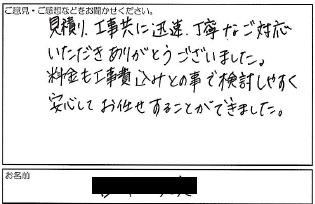 ご意見・ご感想などをお聞かせください。
見積り、工事共に迅速、丁寧なご対応
いただきありがとうございました。
料金も工事費込みとの事で検討しやすく
安心してお任せすることができました。
お名前